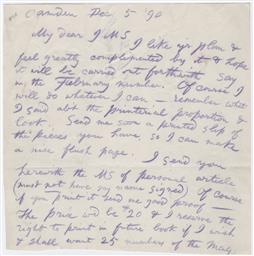 Camden Dec 5 '90
My dear J M S
I like y'r plan &
feel greatly complimented by it, & hope
it will be carried out forthwith say
in the February number. Of course I
will do whatever I can — remember what
I said ab't the printerial proportion &
look. Send me soon a printed slip of
the pieces you have, so I can make
a nice flush page.
I send you
herewith the MS of personal article
(must not have my name signed) Of course
if you print it send me good proof —
The price w'd be $20 & I reserve the
right to print in future book if I wish
& shall want 25 numbers of the mag.